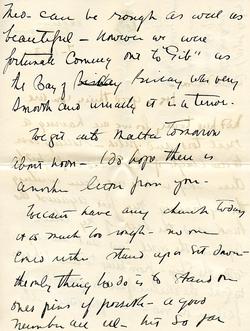 Med - can be rough as well as
beautiful - However we were
fortunate Coming one to "Gib" as
the Bay of Biscay was very
smooth and usually it is a terror.
We get into Malta Tomorrow
about noon - I do hope there is
another letter from you -
We cant have any church today
it is much too rough - no one
could either stand up or sit down -
the only thing to do is to stand on
ones pins if possible - a good
number are ill - but so far